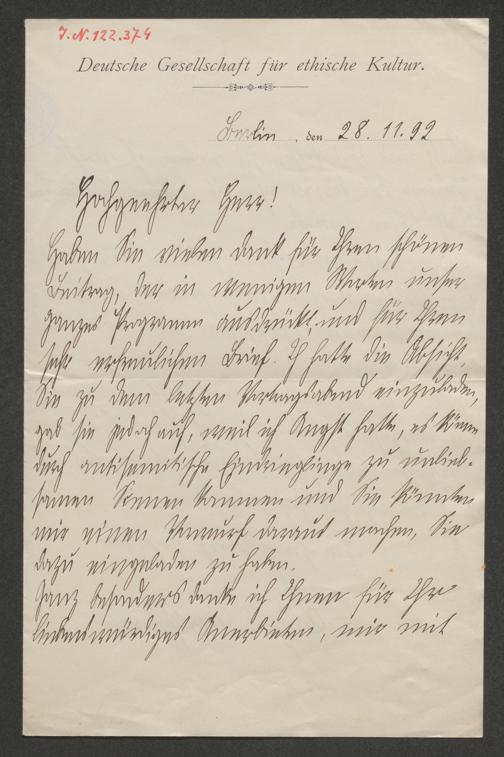 J.N. 122.374
Deutsche Gesellschaft für ethische Kultur.
Berlin, den 28. 11. 92
Hochgeehrter Herr!
Haben Sie vielen Dank für Ihren schönen
Beitrag, der in wenigen Worten unser
ganzes Programm ausdrückt und für Ihren
sehr erfreulichen Brief. Ich hatte die Absicht,
Sie zu dem letzten Vortragsabend einzuladen,
gab sie jedoch auf, weil ich Angst hatte, es könne
durch antisemitische Eindringlinge zu unlieb-
samen Scenen kommen und Sie könnten
mir einen Vorwurf daraus machen, Sie
dazu eingeladen zu haben.
Ganz besonders danke ich Ihnen für Ihr
liebenswürdiges Anerbieten, mir mit